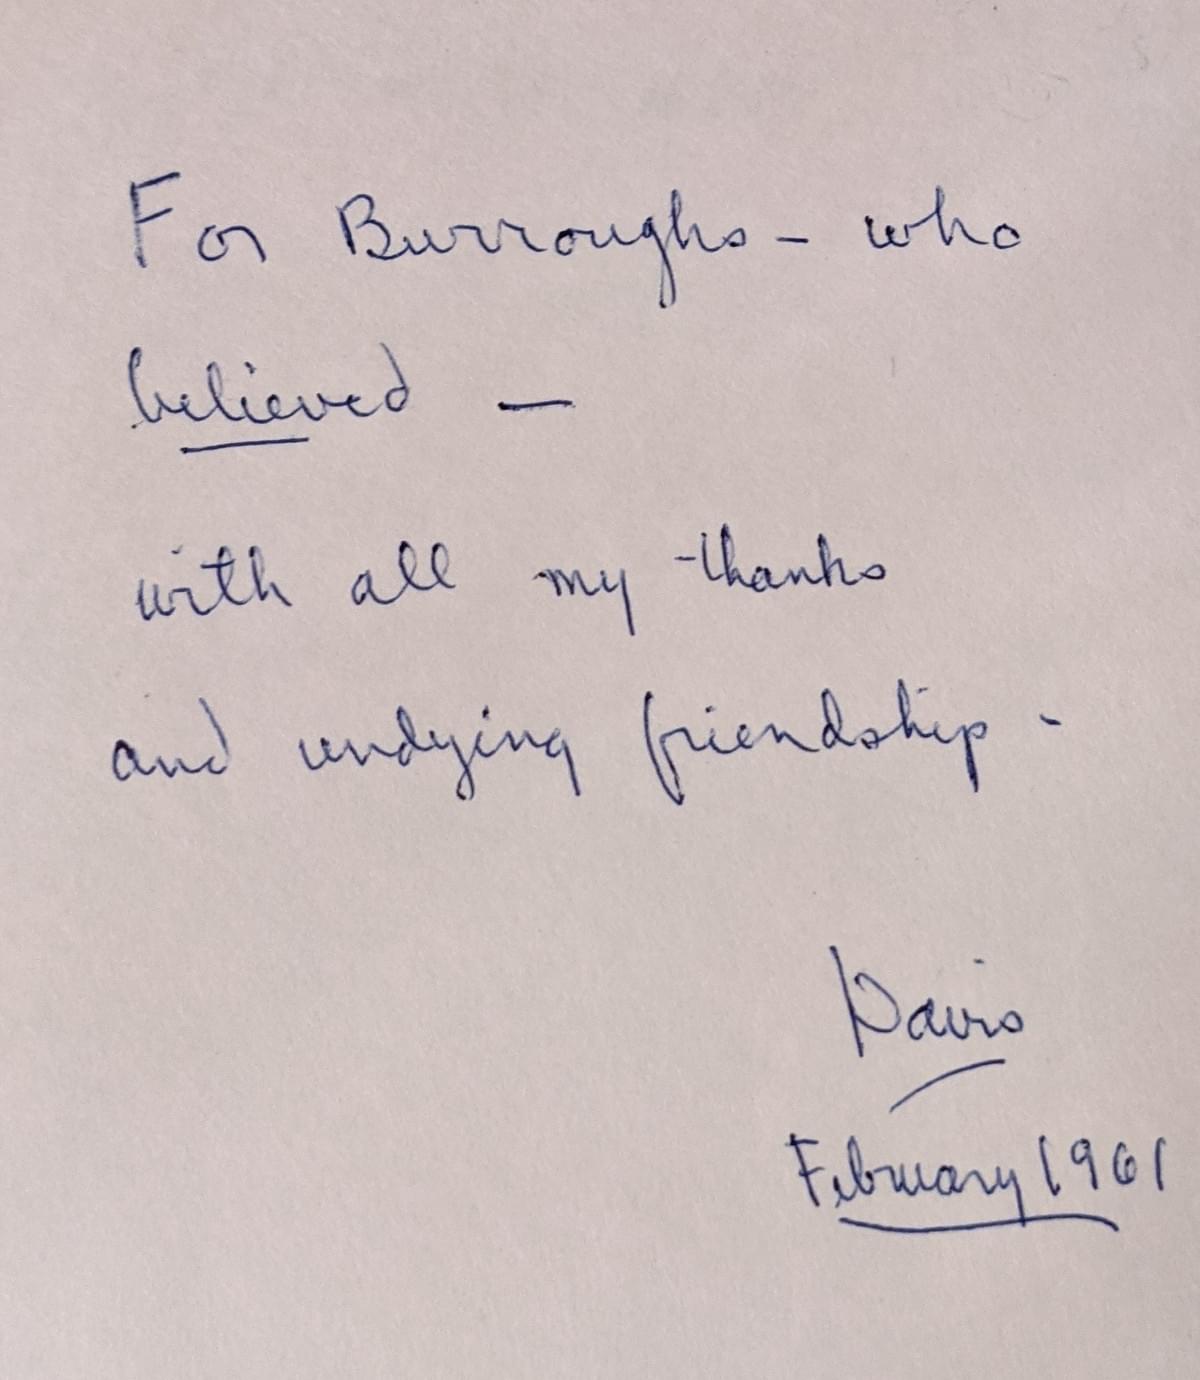 For Burroughs – who
believed –
with all my thanks
and undying friendship -
Davis
February 1961